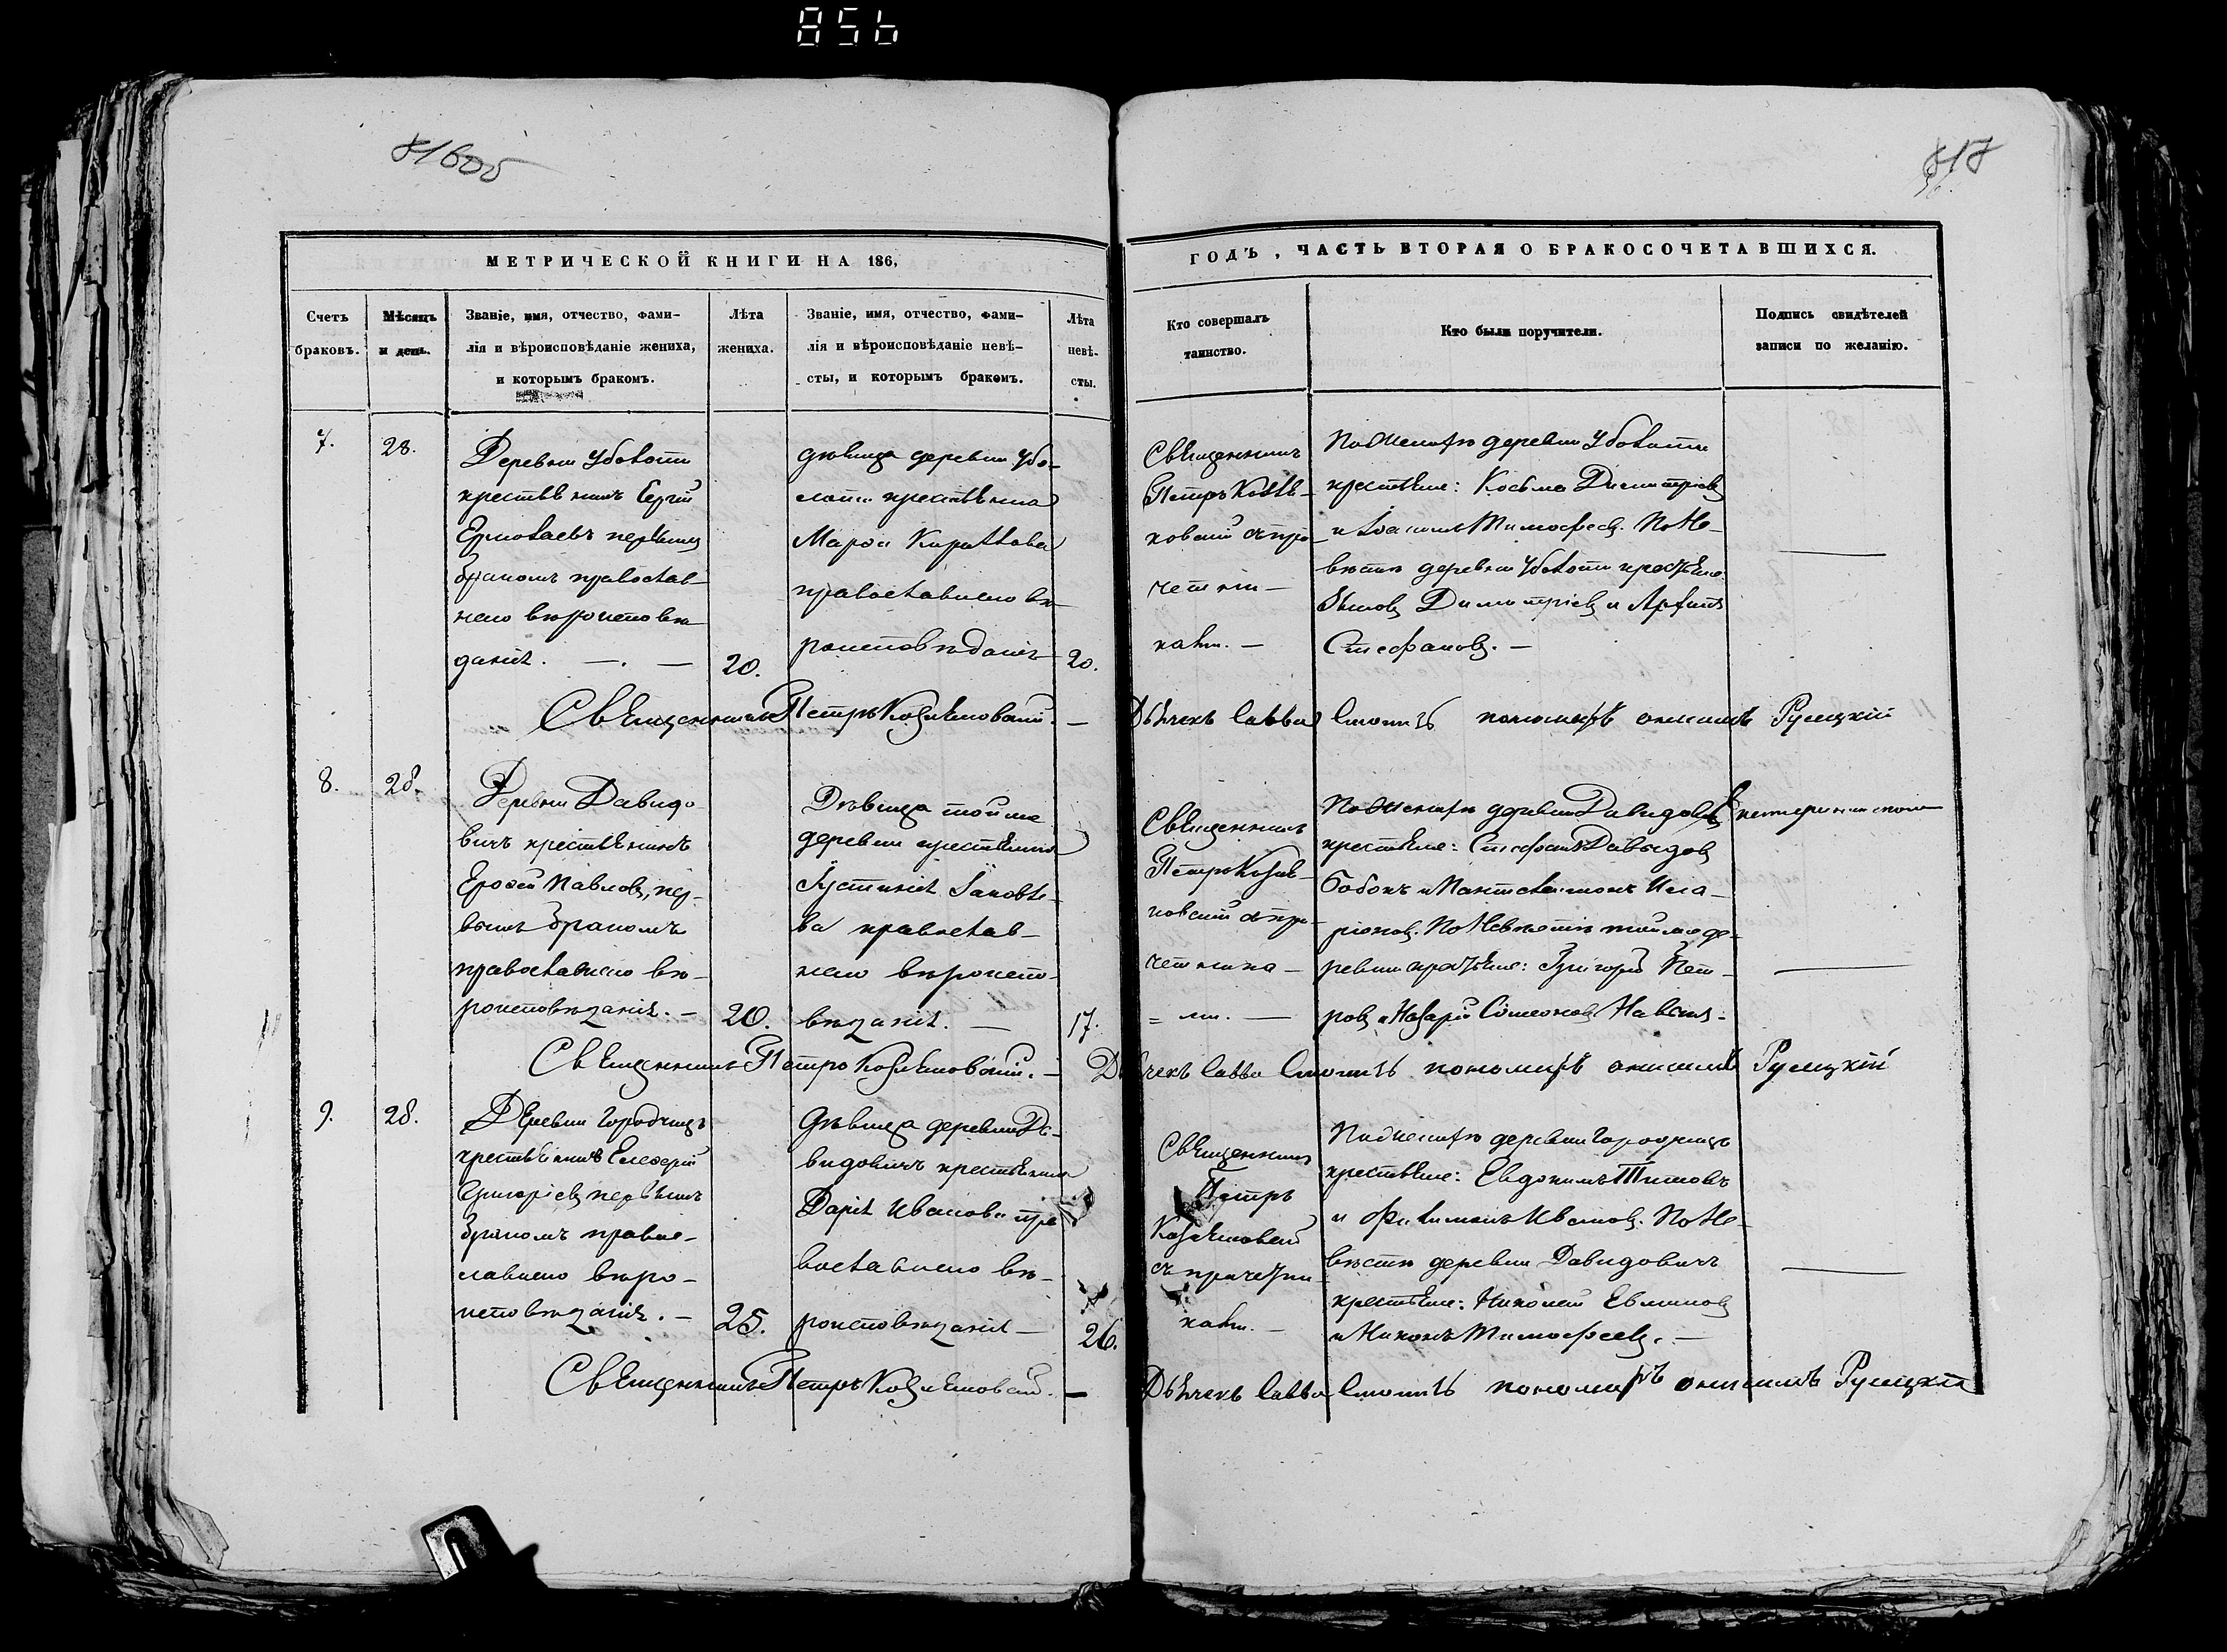 856
81605
817
МЕТРИЧЕСКОЙ КНИГИ НА 186,
ГОДЪ, ЧАСТЬ ВТОРАЯ О БРАКОСОЧЕТАВШИХСЯ.
Счетъ
браковъ.
Мѣсяцъ
и день.
Званіе, имя, отчество, фами-
лія и вѣроисповѣданіе жениха,
и которымъ бракомъ.
Лѣта
жениха.
Званіе, имя, отчество, фами-
лія и вѣроисповѣданіе невѣ-
сты, и которымъ бракомъ.
Лѣта
невѣ-
сты.
Кто совершалъ
таинство.
Кто были поручители.
Подпись свидѣтелей
записи по желанію.
7.
28.
Деревни Уболоти
крестьянинъ Сергій
Ермолаевъ первымъ
бракомъ православ-
наго вѣроисповѣ-
данія. —. —
20.
дѣвица деревни Убо-
лоти крестьянка
Марѳа
православнаго вѣ-
роисповѣданія
20.
Священникъ
Петръ
съ при-
четни-
ками. —
По женихѣ деревни Уболоти
крестьяне: Косьма Димитріевъ
и Іоаннъ Тимофеевъ. По не-
вѣстѣ деревни Уболоти крестьяне
Димитріевъ и
Стефановъ. —
Священникъ Петръ —
Дьячекъ Савва пономарь Румецкій
8.
28.
Деревни Давидо-
вичъ крестьянинъ
Ероѳей Павловъ, пер-
вымъ бракомъ
православнаго вѣ-
роисповѣданія. —
20.
Дѣвица той же
деревни крестьянка
Іустинія Іаковле-
ва православ-
наго вѣроиспо-
вѣданія. —
17.
Священникъ
Петръ
съ при-
четника-
= ми. —
По женихѣ деревни Давидовичъ
крестьяне: Стефанъ Давыдовъ
Бобокъ и Пантелеимонъ Ила-
ріоновъ. По невѣстѣ той же де-
ревни крестьяне: Григорій Пет-
ровъ и Назарій Симеоновъ
Священникъ Петръ —
Дьячекъ Савва пономарь Румецкій
9.
28.
Деревни Городчицъ
крестьянинъ
Григоріевъ первымъ
бракомъ право-
славнаго вѣро-
исповѣданія. —
25.
Дѣвица деревни Да-
видовичъ крестьянка
Дарія Иванова пра-
вославнаго вѣ-
роисповѣданія —
26.
Священникъ
Петръ
съ причетни-
ками. —
По женихѣ деревни Городчицъ
крестьяне: Евдокимъ Титовъ
и Филимонъ Ивановъ. По не-
вѣстѣ деревни Давидовичъ
крестьяне: Николай
и Никонъ Тимофеевъ. —
Священникъ Петръ —
Дьячекъ Савва пономарь Румецкій